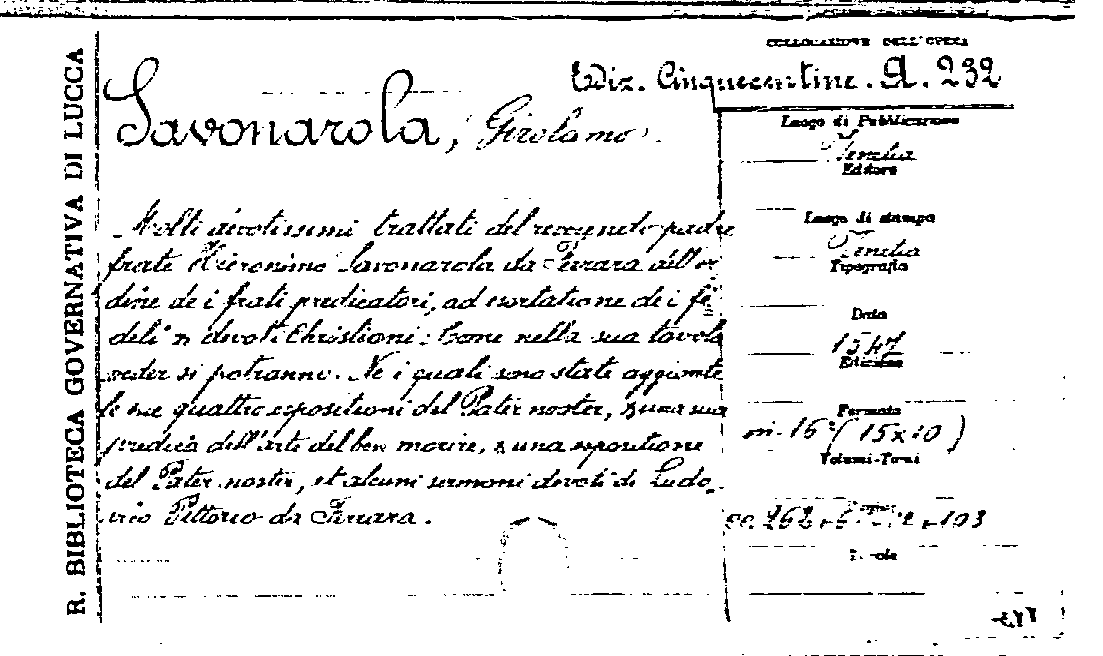 R. BIBLIOTECA GOVERNATIVA DI LUCCA
COLLOCAZIONE DELL'OPERA
Ediz. Cinquecentine. A. 232
Savonarola, Girolamo
Molti devotissimi trattati del reverendo padre
frate Hieronimo Savonarola da Ferrara dell'or
dine de i frati predicatori, ad esortatione de i fe
deli e devoti Christiani: Come nella sua tavola
veder si potranno. Ne i quali sono state aggionte
le sue quattro espositioni del Pater noster, & una sua
predica dell'arte del ben morire, & una espositione
del Pater noster, et alcuni sermoni devoti di Ludo
vico Pittorio da Ferrara.
Luogo di Pubblicazione
Venetia
Editore
Luogo di stampa
Venetia
Tipografia
Data
1547
Edizione
Formato
in-16° (15x10)
Volumi-Tomi
cc. 262 + 103
Tavole